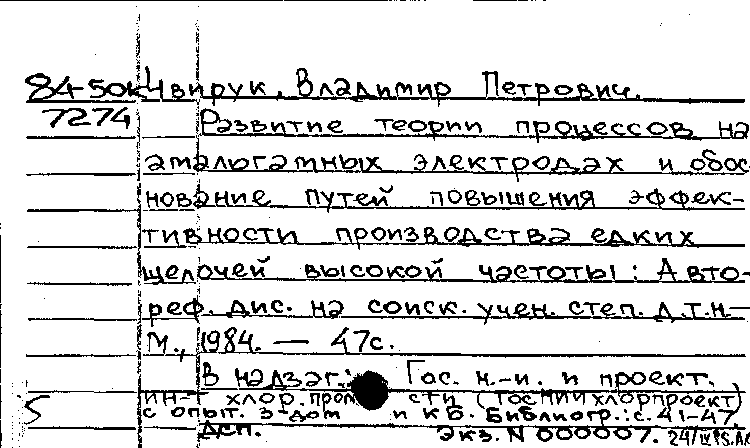 84-50к Чвирук, Владимир Петрович.
7274 Развитие теории процессов на
амальгамных электродах и обос
нование путей повышения эффек-
тивности производства едких
щелочей высокой частоты: Авто-
реф. дис. на соиск. учен. степ. д.т.н.-
М., 1984. — 47с.
В надзаг.: Гос. н.-и. и проект.
ин-т хлор. пром сти (ГосНИИхлорпроект)
5 с опыт. з-дом и КБ. Библиогр.: с. 41-47.
Дсп. Экз. N 000007.